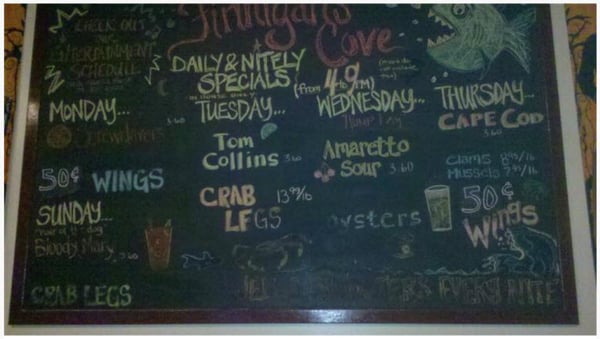 Finnigan's
Cove
CHECK OUT
ENTERTAINMENT
SCHEDULE
DAILY & NITELY
SPECIALS
(from 4 to 9 PM)
MONDAY...
Screwdrivers
3.60
50¢ WINGS
SUNDAY...
Hair of the dog
Bloody Mary 3.60
CRAB LEGS
TUESDAY...
Tom
Collins 3.60
CRAB 13.95/lb
LEGS
WEDNESDAY...
Hump Day
Amaretto
Sour 3.60
oysters
THURSDAY...
CAPE COD
3.60
Clams 8.95/lb
Mussels 7.95/lb
50¢
Wings
EVERY NITE